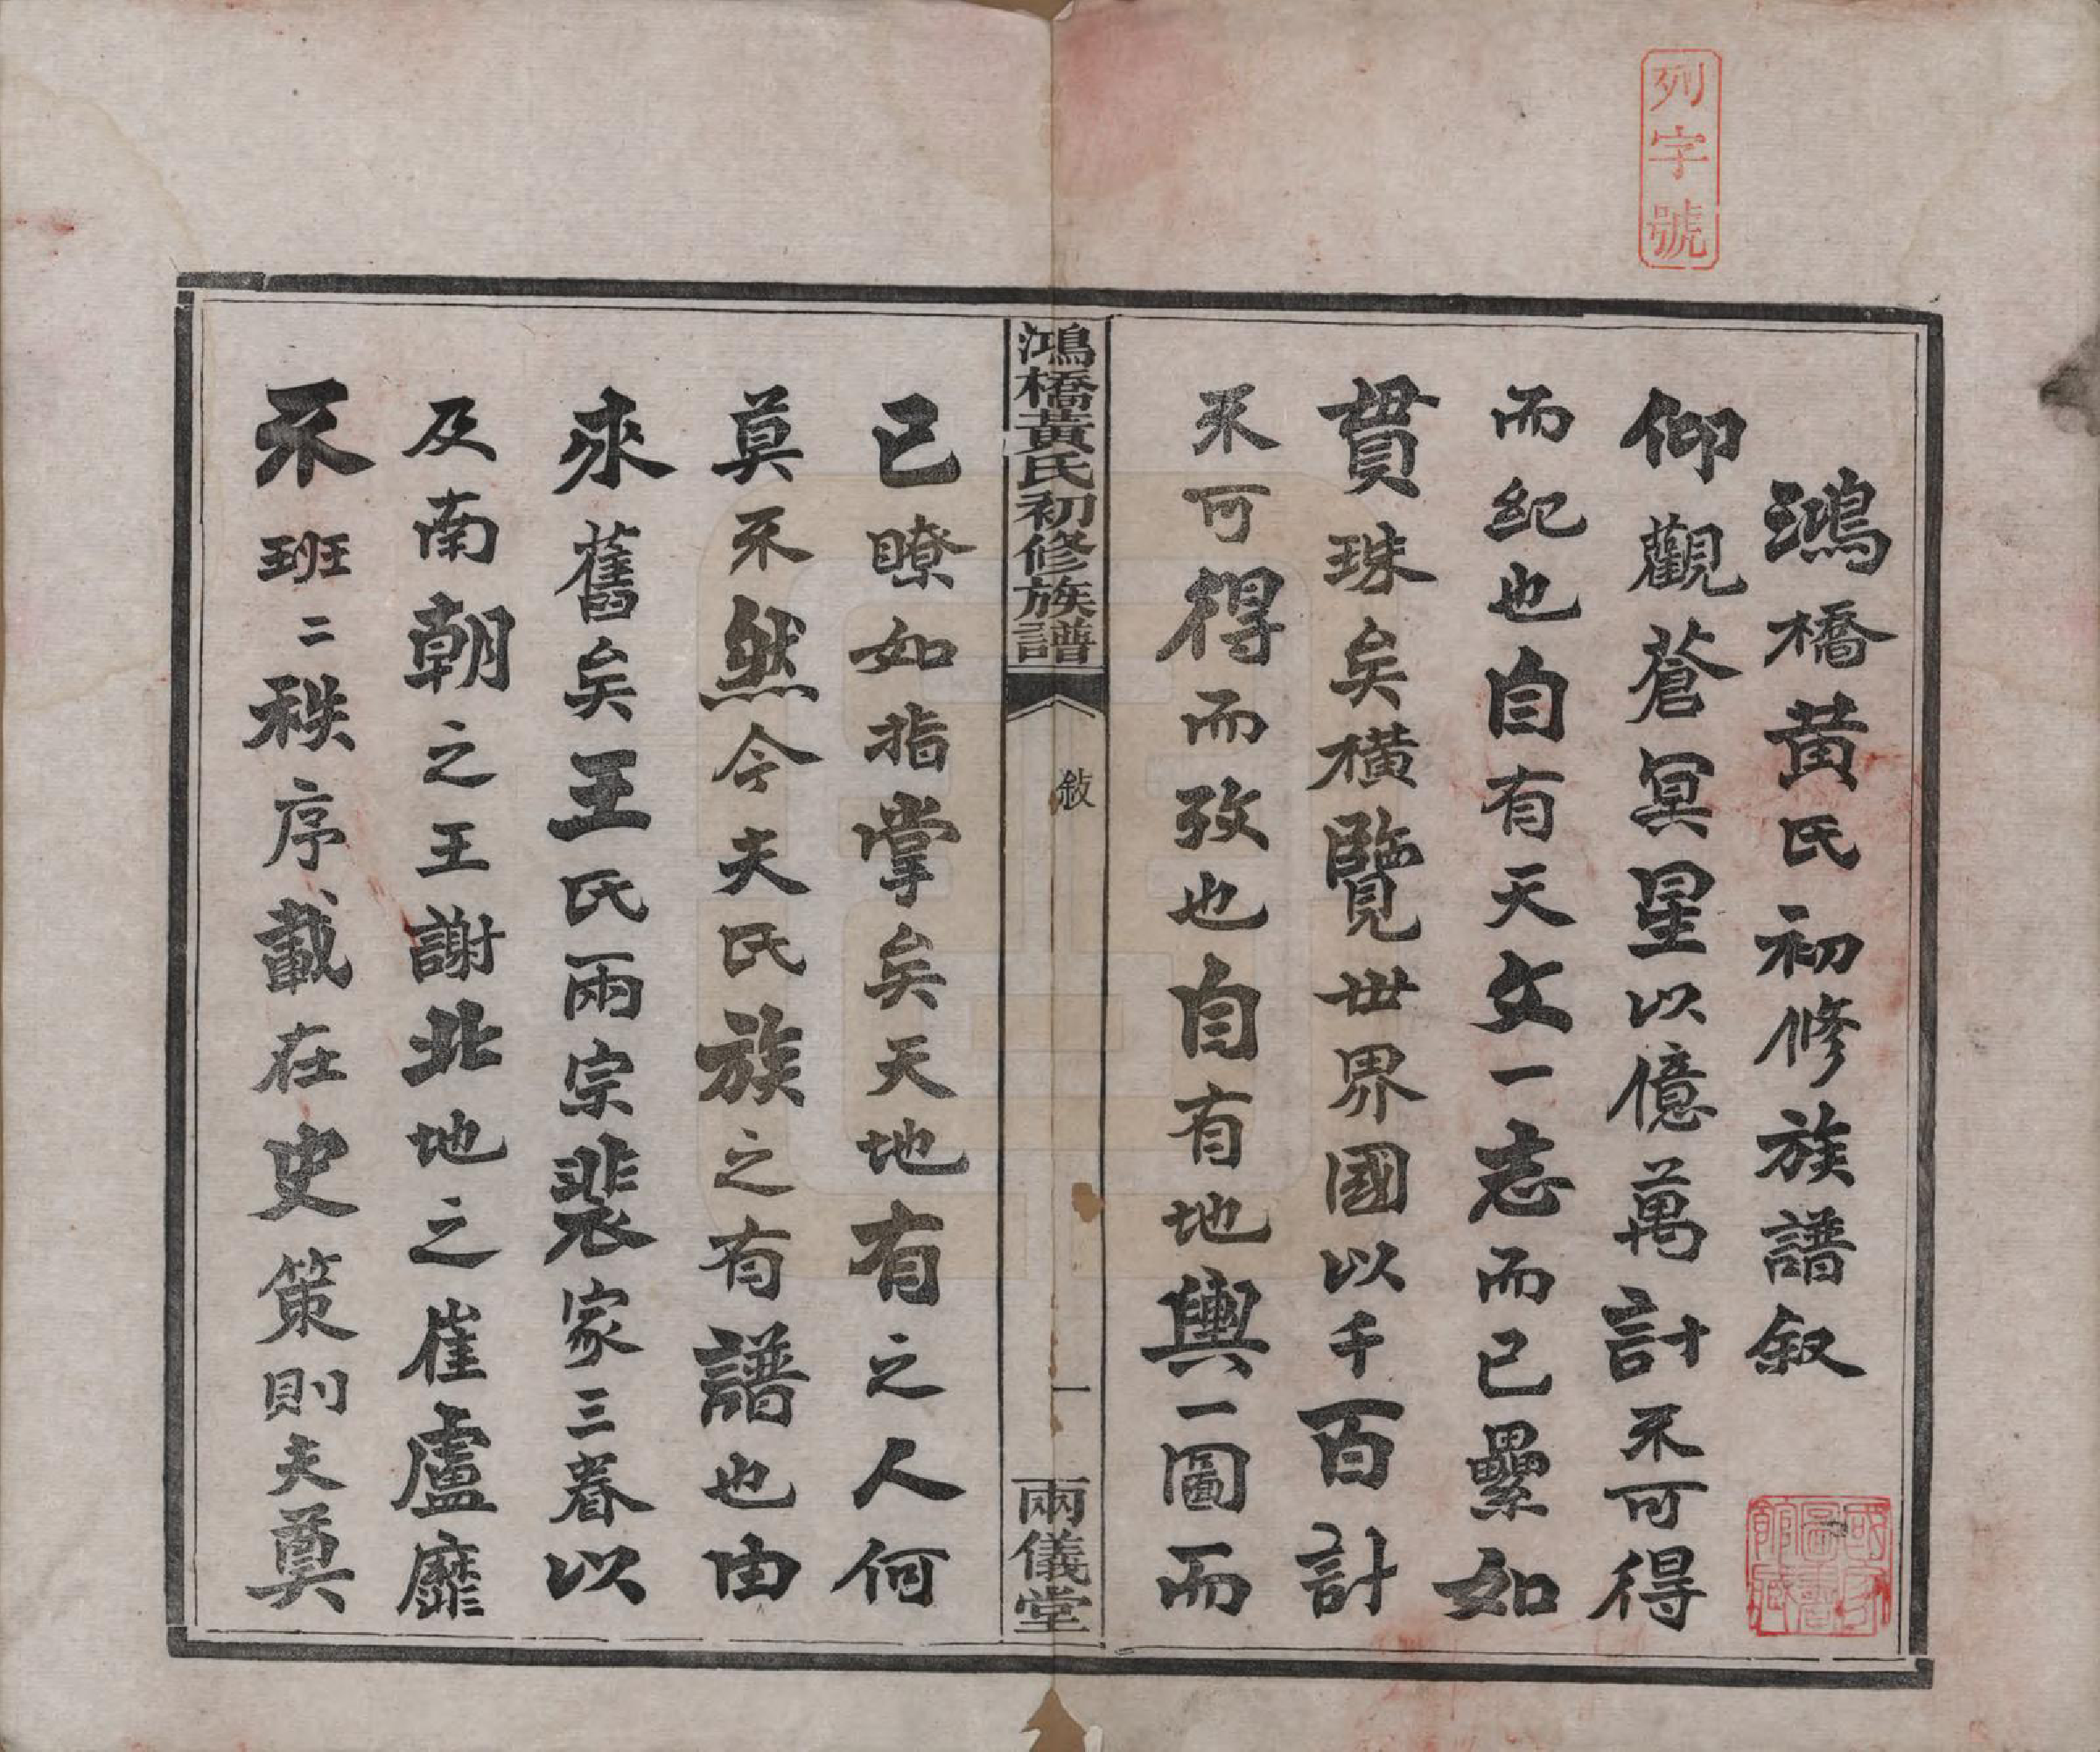 列字號
鴻橋黄氏初修族譜叙
仰觀蒼冥星以億萬計不可得
而紀也自有天文一志而已纍如
貫珠矣橫覽世界國以千百計
不可得而攷也自有地輿一圖而
鴻橋黃氏初修族譜
敍
一
兩儀堂
已瞭如指掌矣天地有之人何
莫不然今夫氏族之有譜也由
來舊矣王氏兩宗裴家三眷以
及南朝之王謝北地之崔盧靡
不班二秩序載在史策則夫奠